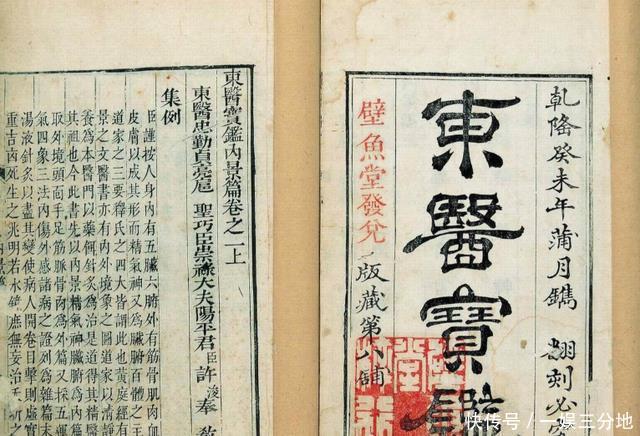 乾隆癸未年蒲月鐫 翻刻必
東醫寶鑑
璧魚堂發兌
版藏第八舖
東醫寶鑑內景篇卷之一上
東醫忠勤貞亮扈 聖功臣崇祿大夫陽平君臣許浚奉
集例
臣謹按人身內有五臟六腑外有筋骨肌肉血
皮膚以成其形而精氣神又爲臟腑百體之
道家之三要釋氏之四大皆謂此也黃庭經有
景之文醫書亦有內外境象之圖道家以清靜
養爲本醫門以藥餌針灸爲治是道得其精醫
其粗也今此書先以內景精氣神臟腑爲內篇
取外境頭面手足筋脉骨肉爲外篇又採五運
氣四象三法內傷外感諸病之證列爲雜篇末
湯液針灸以盡其變使病人開卷目擊則虛實
重吉凶死生之兆明若水鏡庶無妄治夭折之
快传号／一娱三分地